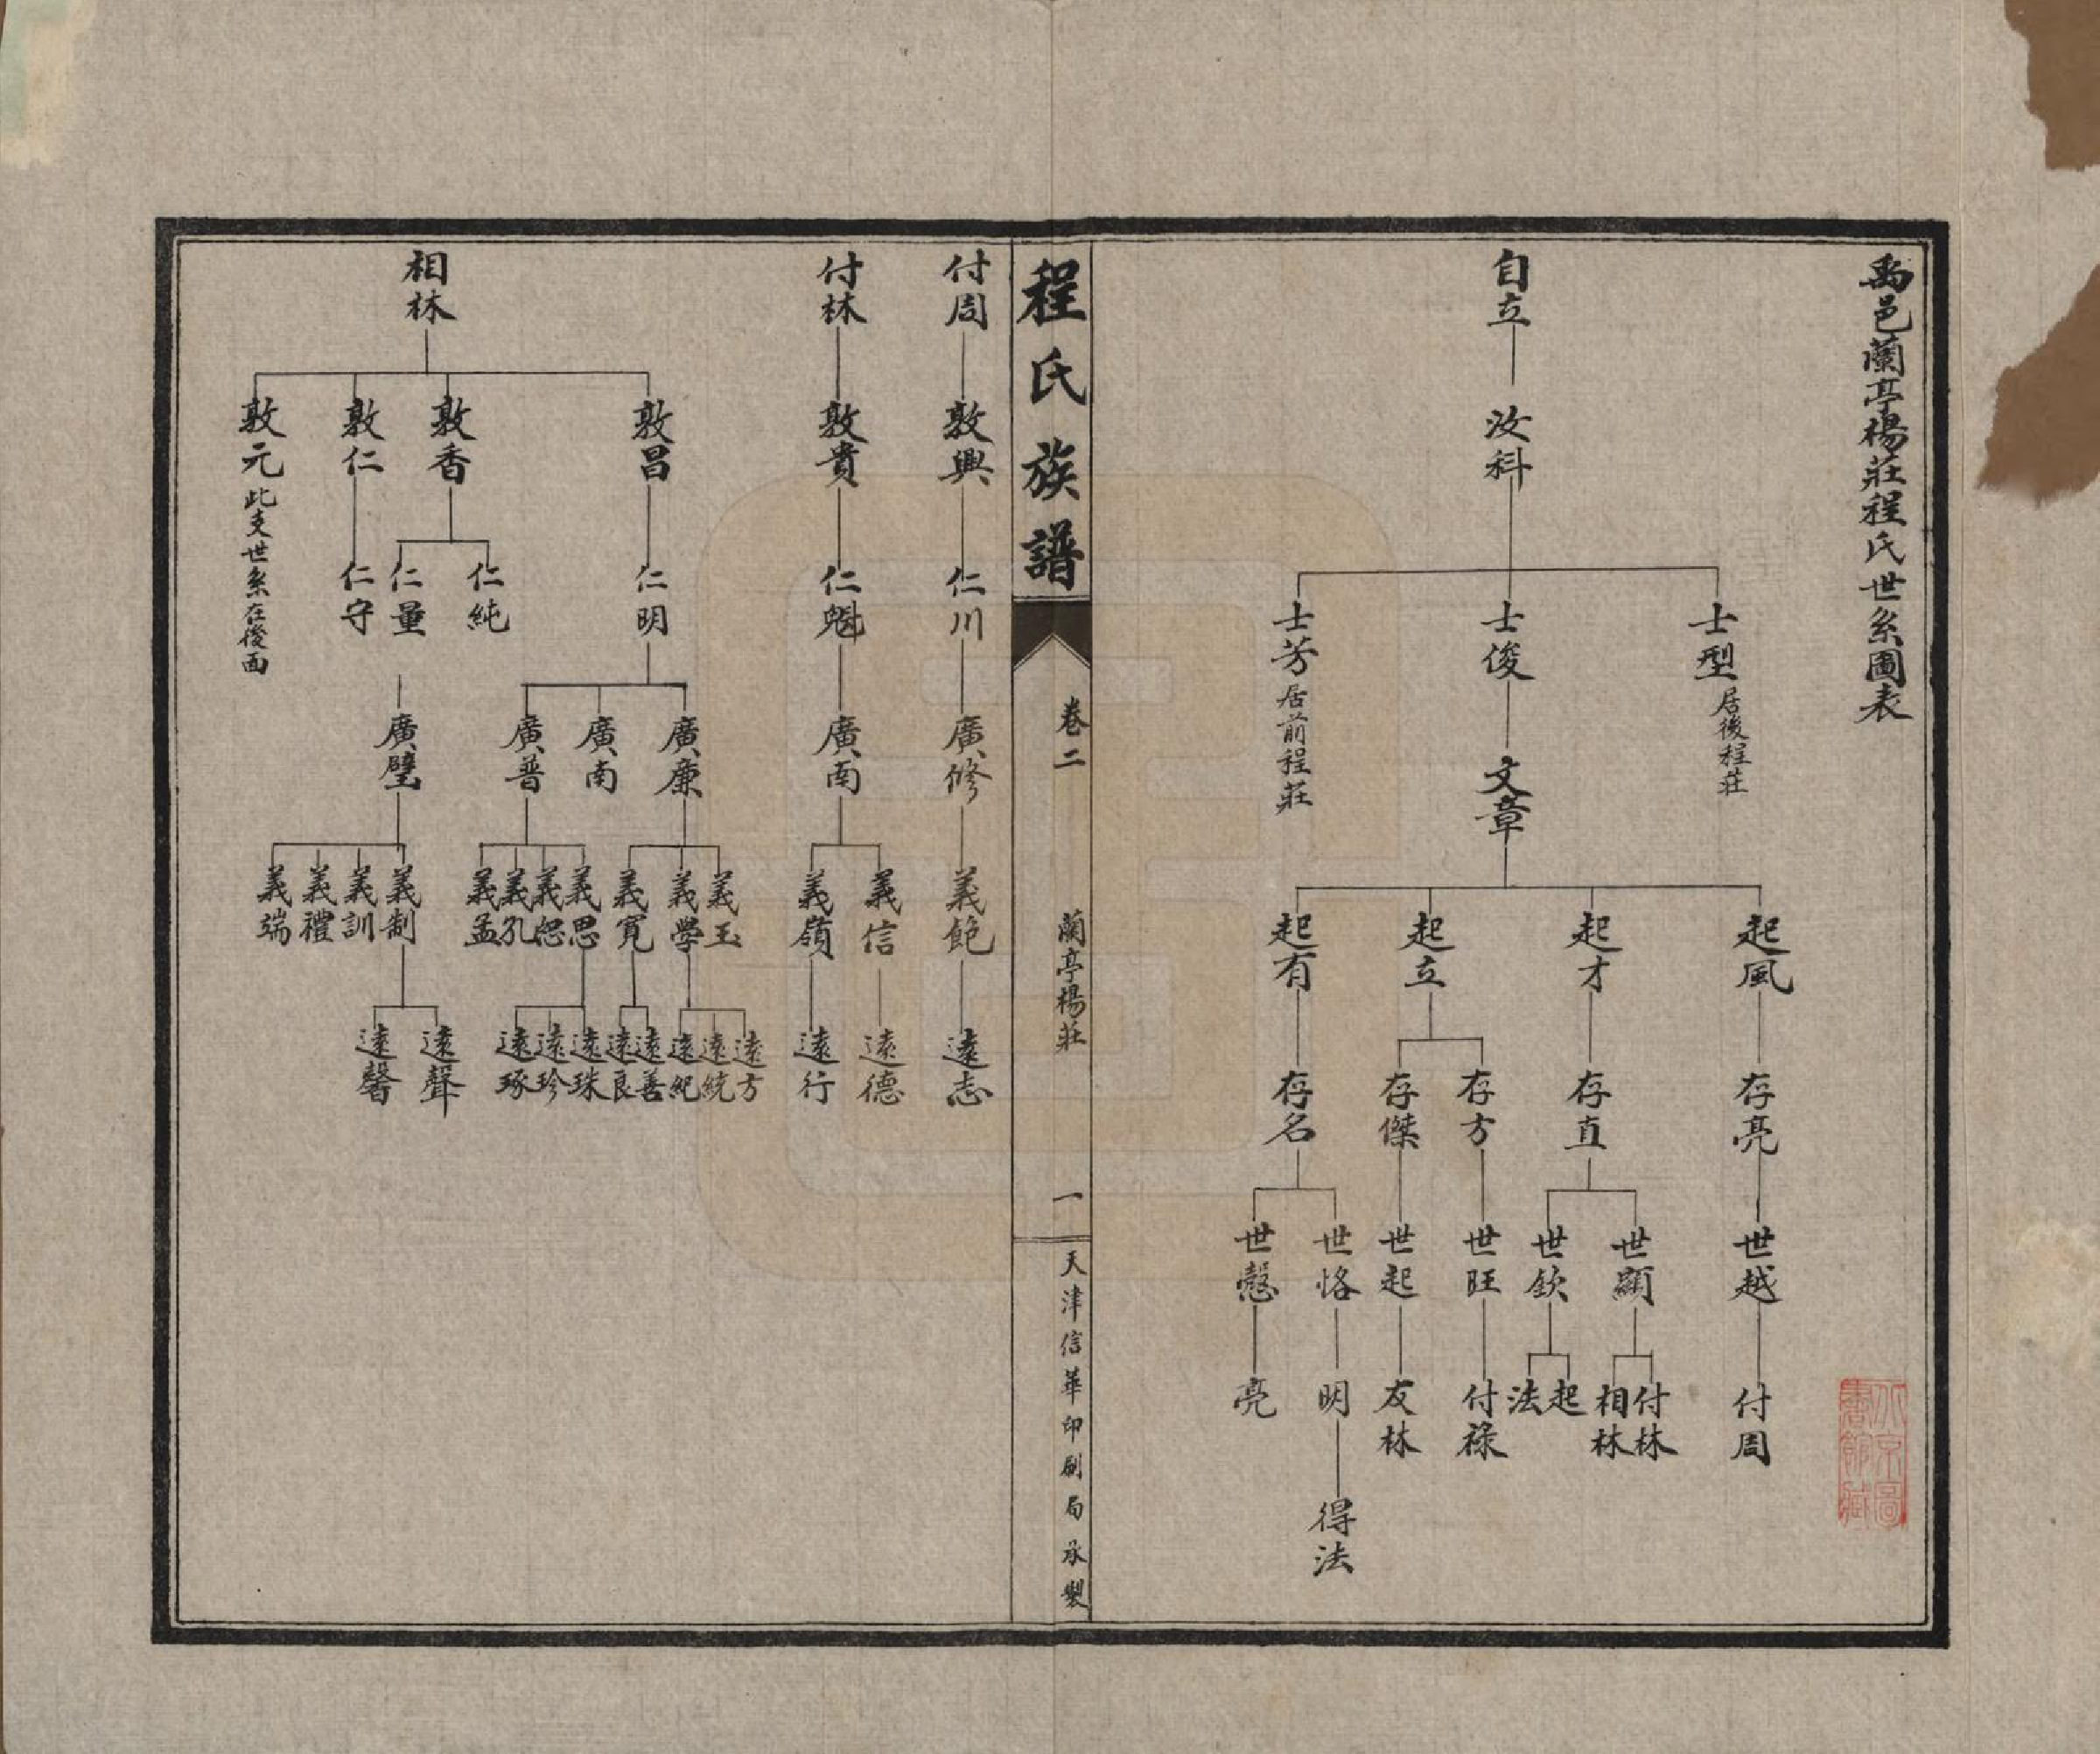 禹邑蘭亭楊莊程氏世系圖表
自立
汝科
士型 居後程莊
士俊
士芳 居前程莊
文章
起風
起才
起立
起有
存亮
存直
存方
存傑
存名
世越
世顯
世欽
世旺
世起
世恪
世慤
付周
付林
相林
起
法
付祿
友林
明
亮
得法
程氏族譜
卷二
蘭亭楊莊
一
天津信華印刷局承製
付周
付林
相林
敦興
敦貴
敦昌
敦香
敦仁
敦元 此支世系在後面
仁川
仁魁
仁明
仁純
仁量
仁守
廣修
廣南
廣廉
廣南
廣普
廣璧
義飽
義信
義嶺
義玉
義學
義寬
義思
義恕
義孔
義孟
義制
義訓
義禮
義端
遠志
遠德
遠行
遠方
遠統
遠紀
遠善
遠良
遠珠
遠珍
遠琢
遠聲
遠馨